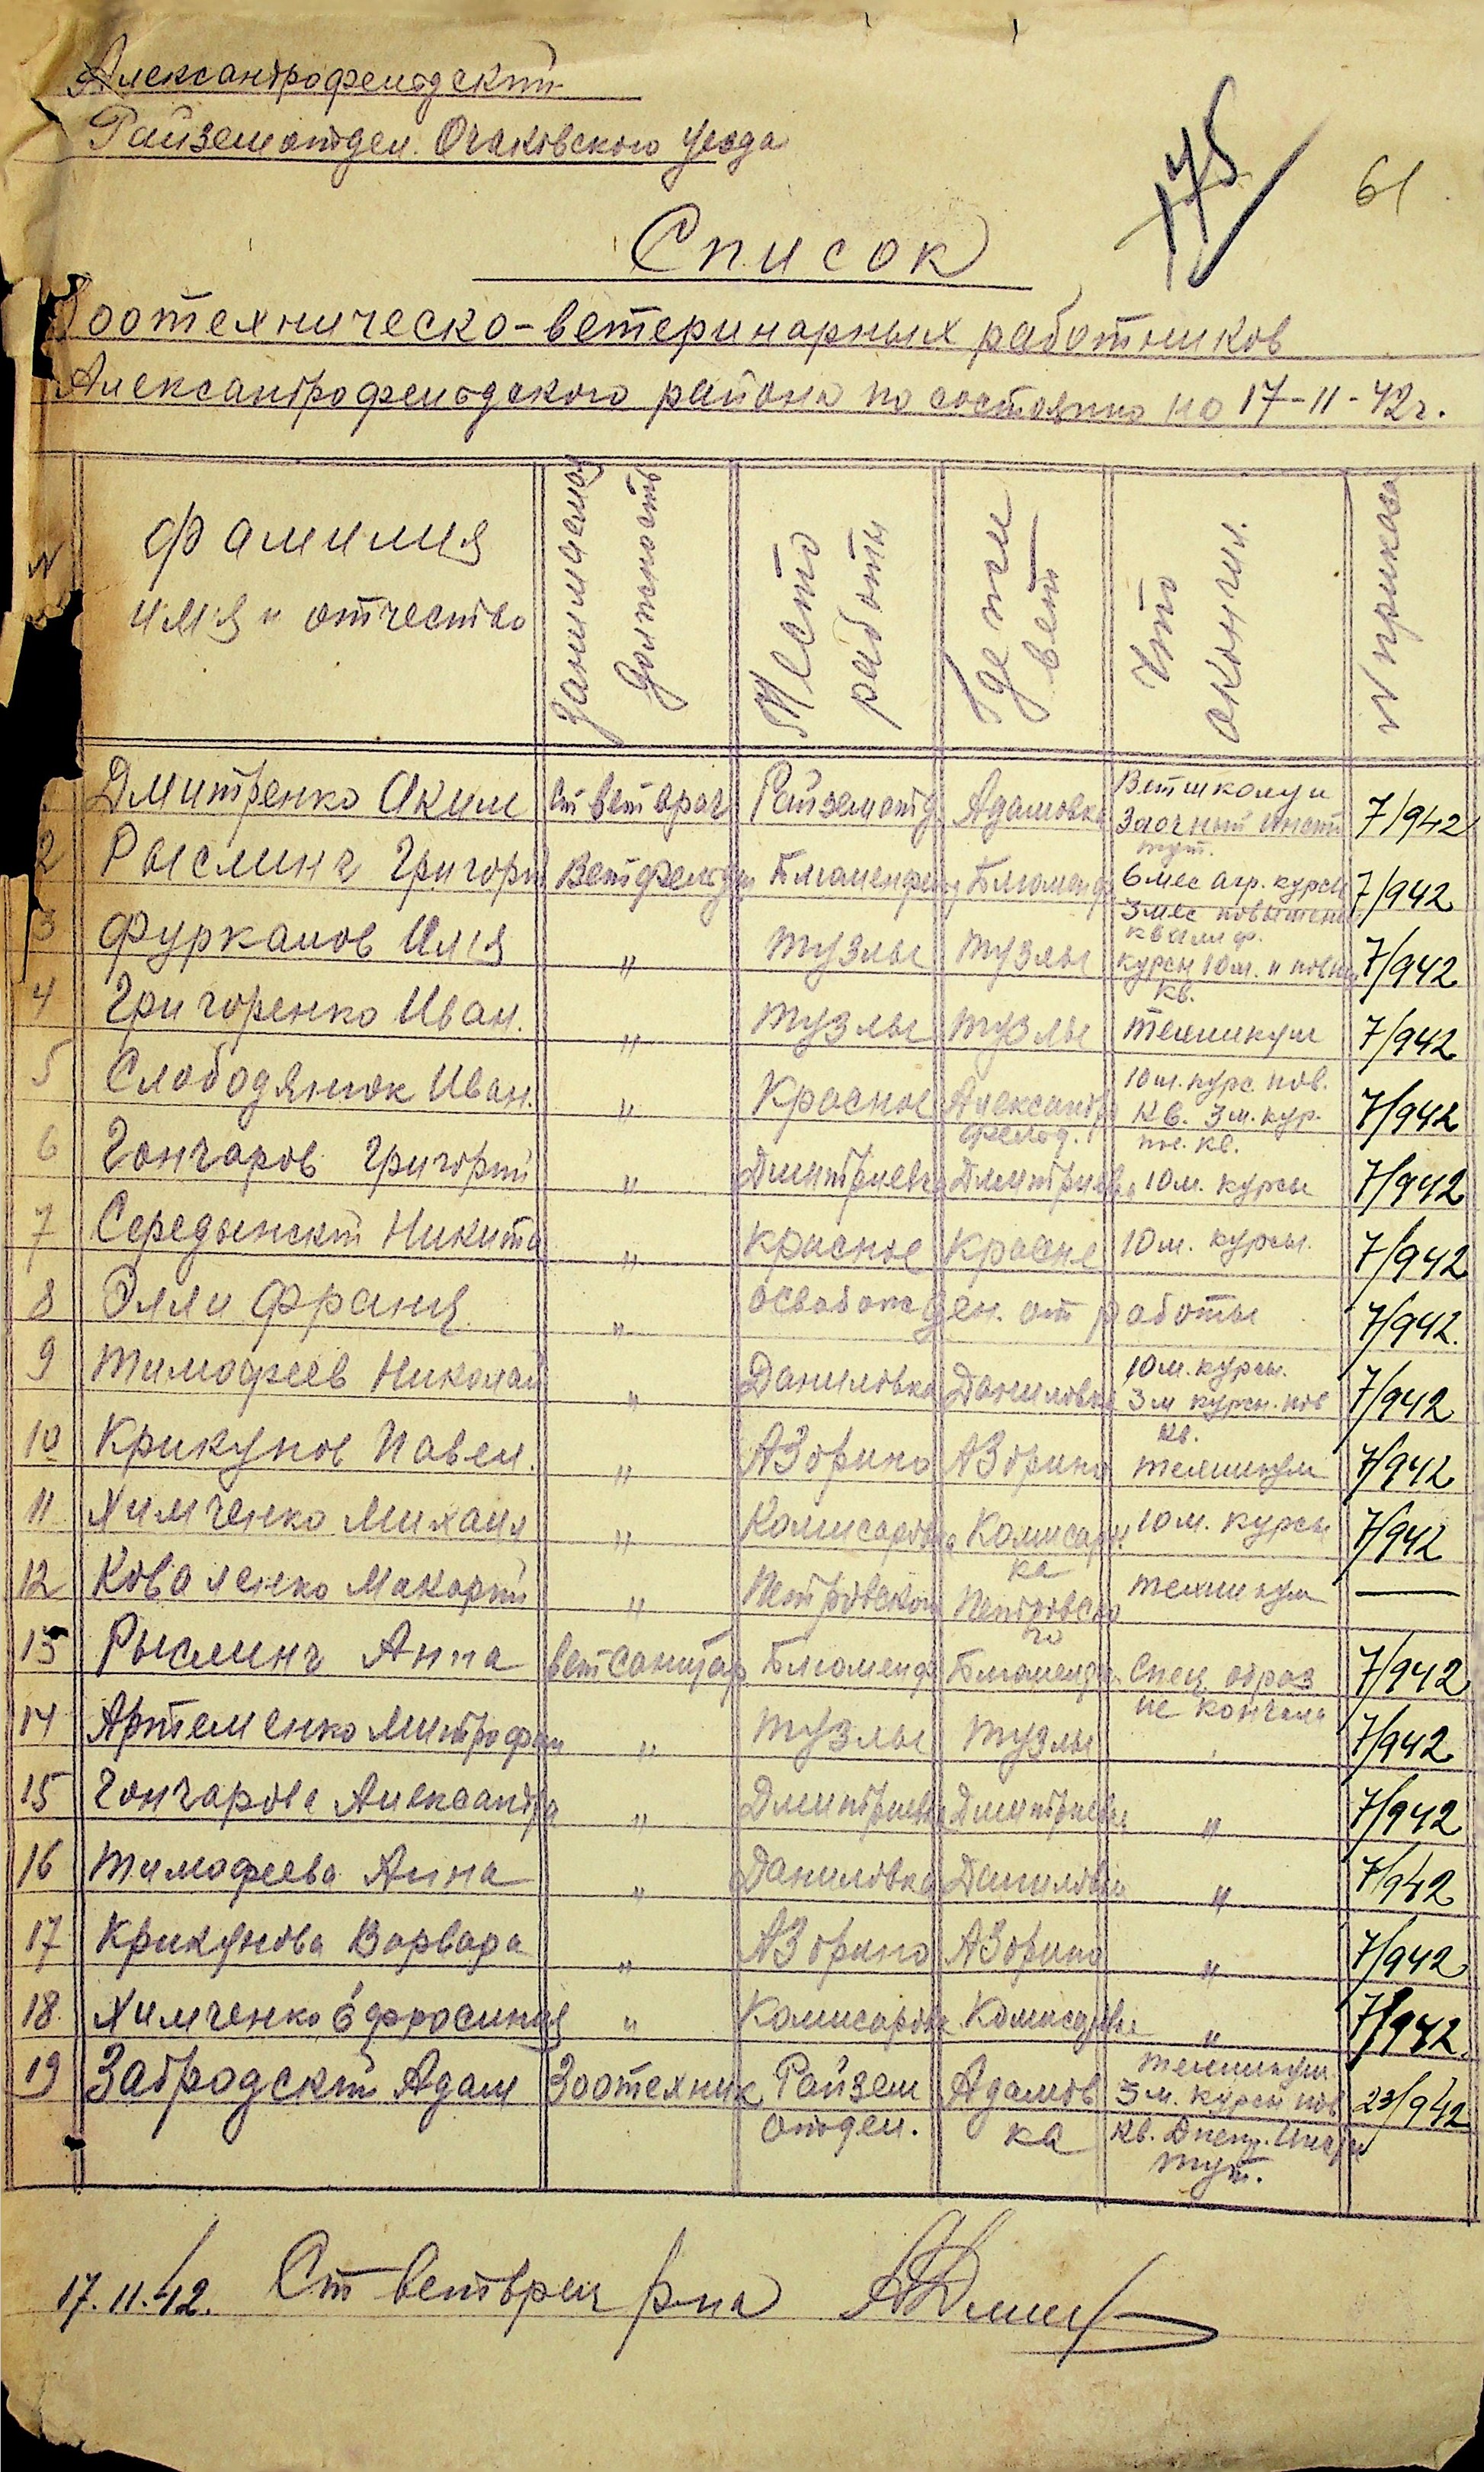 Александрофельдский
Райземотдел. Очаковского уезда
175
61
Список
Зоотехническо-ветеринарных работников
Александрофельдского района по состоянию на 17-11-42г.
N | Фамилия имя и отчество | Занимаемая должность | Место работы | Где живет | Что окончил. | N приказа
Дмитренко Аким | Ст ветврач | Райземотд. | Адамовка | Ветшколу и Заочный инсти тут. | 7/942
2 | Рыслинг Григорий | Ветфельдш | Блюменфельд | Блюменф | 6 мес агр. курсы 3 мес повышения квалиф. | 7/942
3 | Фурканов Илья | " | Тузлы | Тузлы | курсы 10 м. и повыш кв. | 7/942
4 | Григоренко Иван. | " | Тузлы | Тузлы | техникум | 7/942
5 | Слободянюк Иван. | " | Красное | Александро фельд. | 10 м. курс. пов. кв. 3 м. кур. | 7/942
6 | Гончаров Григорий | " | Дмитриевка | Дмитриевка | 10 м. курсы | 7/942
7 | Середынский Никита | " | Красное | Красне | 10 м. курсы. | 7/942
8 | Элли Франц. | " | освобожден. от работы | 7/942.
9 | Тимофеев Николай | " | Даниловка | Даниловка | 10 м. курсы. 3 м курсы. пов кв. | 7/942
10 | Крикунов Павел. | " | АЗорино | АЗорино | техникум | 7/942
11 | Химченко Михаил | " | Комисаровка | Комисаров ка | 10 м. курсы | 7/942
12 | Коваленко Макарий | " | Петровском | Петровско го | техникум | —
13 | Рыслинг Анна | ветсанитар | Блюменф | Блюменф. | Спец образ не кончала | 7/942
14 | Артеменко Митрофан | " | Тузлы | Тузлы | " | 7/942
15 | Гончарова Александра | " | Дмитриевка | Дмитриевка | " | 7/942
16 | Тимофеева Анна | " | Даниловка | Даниловка | " | 7/942
17 | Крикунова Варвара | " | АЗорино | АЗорино | " | 7/942
18. | Химченко Ефросиния | " | Комисаровка | Комисаровке | " | 7/942.
19 | Забродский Адам | Зоотехник | Райзем отдел. | Адамов ка | техникум 3 м. курсы пов кв. Днепр. Инсти тут. | 23/942
17.11.42. Ст ветврач р-на АДмит